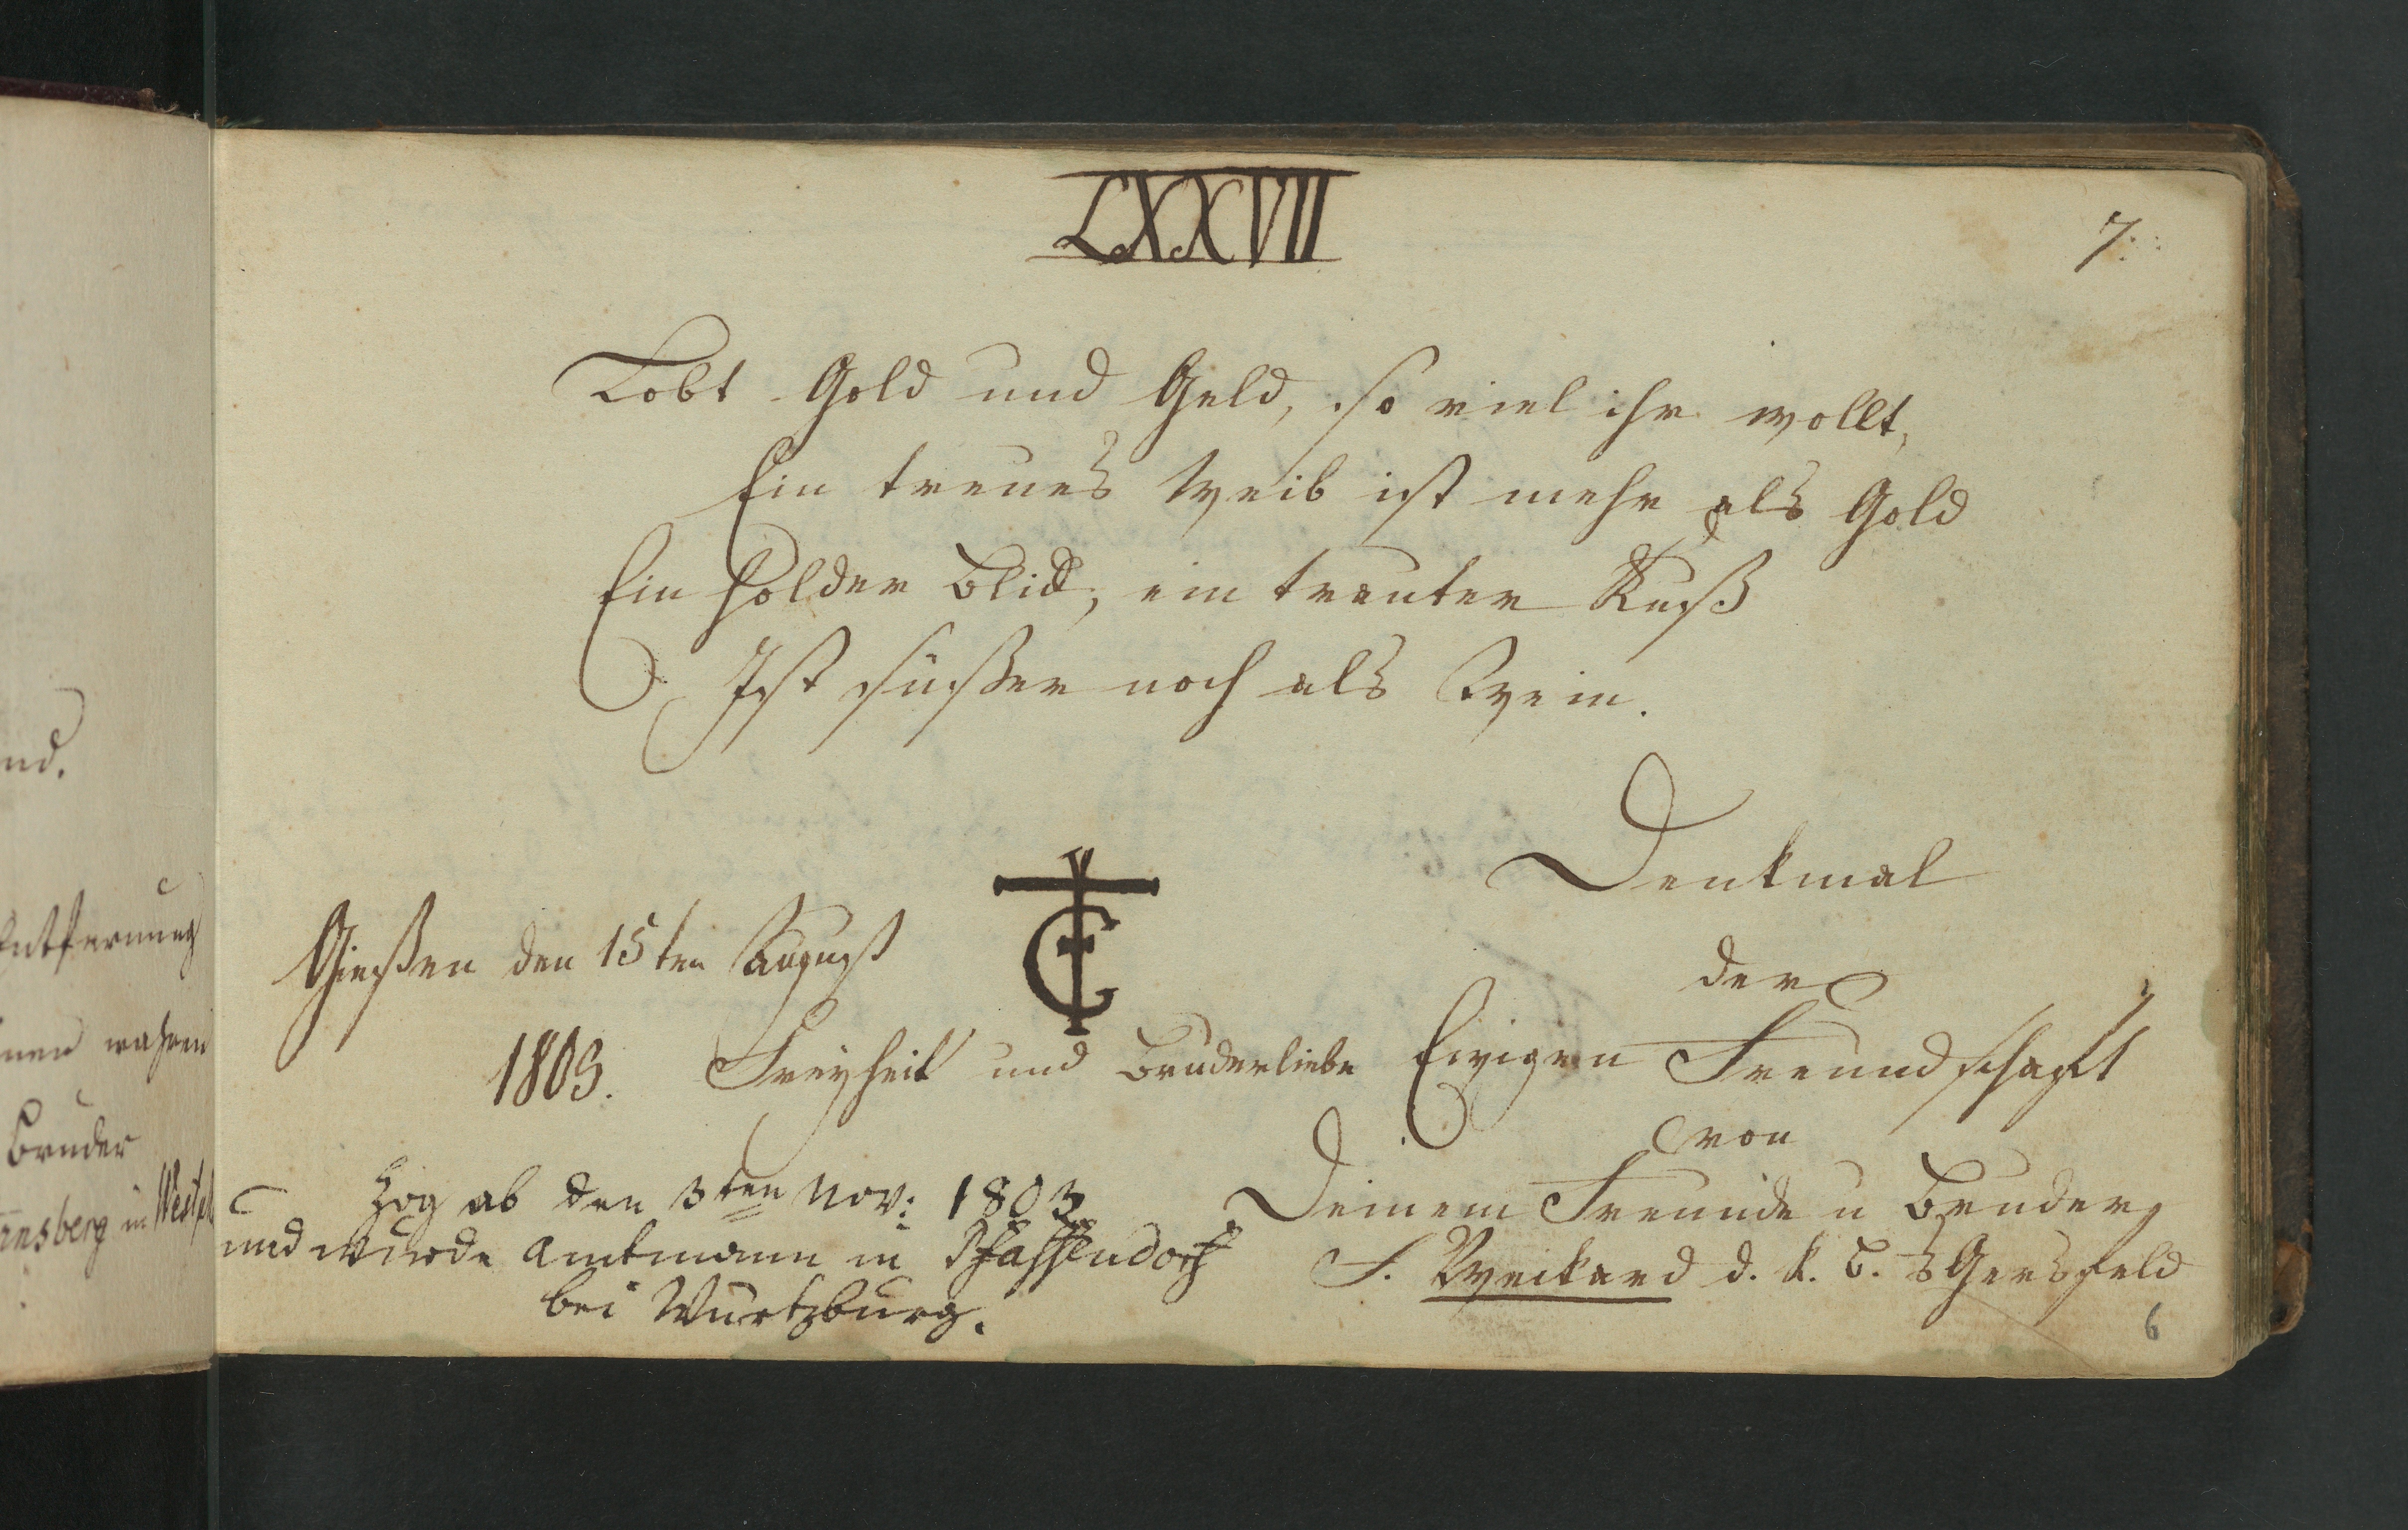 LXXVII
7.
Lobt Gold und Geld, so viel ihr wollt,
Ein treues Weib ist mehr als Gold
Ein holder Blick, ein trauter Kuß
Ist süßer noch als Wein.
Denkmal
der
Ewigen Freundschaft
von
Deinem Freunde u Bruder
F. Weikard d. k. B. s Gersfeld
Gießen den 15ten August
1803.
Freyheit und Bruderliebe
Zog ab den 3ten Nov: 1803
und wurde Amtmann in Pfaffendorf
bei Würtzburg.
6
nd.
Entfernung
wahren
Bruder
Arnsberg in Westf